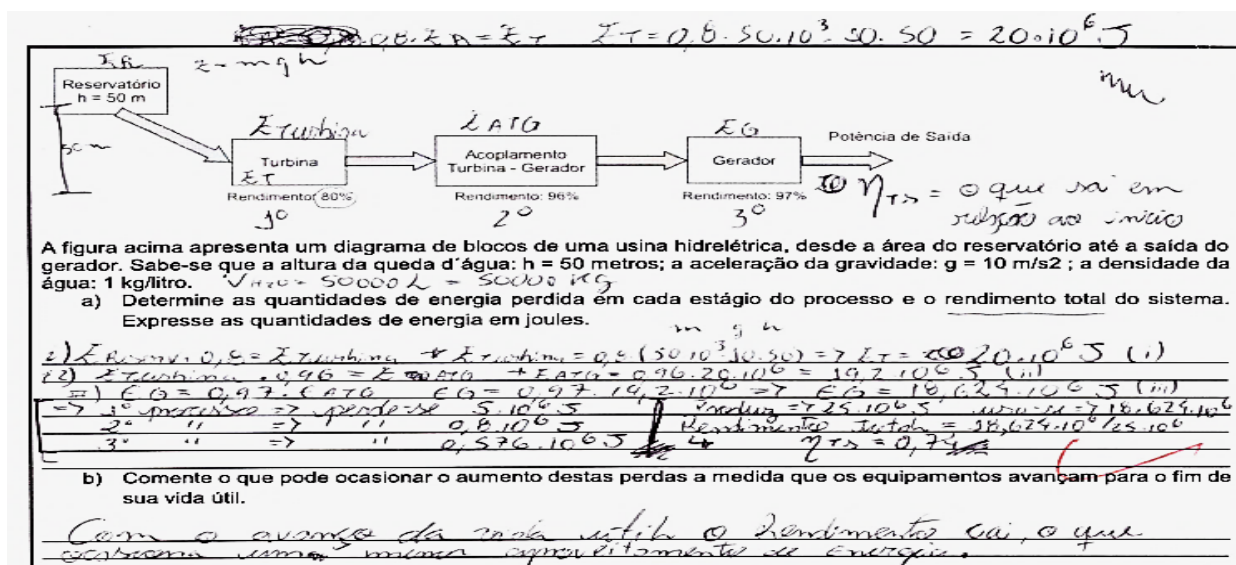 0,8.EA = ET ET = 0,8.50.10³.10.50 = 20.10⁶ J
ER
z = mgh
Reservatório
h = 50 m
50 m
E Turbina
E ATG
EG
Potência de Saída
Turbina
ET
Acoplamento
Turbina - Gerador
Gerador
Rendimento: 80%
Rendimento: 96%
Rendimento: 97%
1º
2º
3º
ηTS = o que sai em
relação ao início
A figura acima apresenta um diagrama de blocos de uma usina hidrelétrica, desde a área do reservatório até a saída do
gerador. Sabe-se que a altura da queda d´água: h = 50 metros; a aceleração da gravidade: g = 10 m/s2 ; a densidade da
água: 1 kg/litro. VH2O = 50000 L = 50000 Kg
a) Determine as quantidades de energia perdida em cada estágio do processo e o rendimento total do sistema.
Expresse as quantidades de energia em joules.
m g h
i) E Reserv. 0,8 = E Turbina E Turbina = 0,8 (50 10³.10.50) => ET = 20.10⁶ J (i)
E Turbina .0,96 = E ATG EATG = 0,96.20.10⁶ = 19,2.10⁶ J (ii)
EG = 0,97.EATG EG = 0,97.19,2.10⁶ => EG = 18,624.10⁶ J (iii)
=> 1º processo => perde-se 5.10⁶ J Produz => 25.10⁶ J usa-se => 18,624.10⁶
2º " => " 0,8.10⁶ J Rendimento Total = 18,624.10⁶/25.10⁶
3º " => " 0,576.10⁶ J ηTS = 0,74
b) Comente o que pode ocasionar o aumento destas perdas a medida que os equipamentos avançam para o fim de
sua vida útil.
Com o avanço da vida útil o Rendimento cai, o que
ocasiona uma menor aproveitamento de energia.